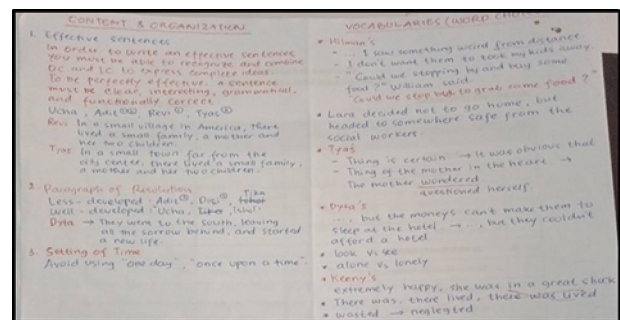 CONTENT & ORGANIZATION
1. Effective sentences
In order to write an effective sentences
you must be able to recognize and combine
DC and IC to express complete ideas.
To be perfectly effective, a sentence
must be clear, interesting, grammatical,
and functionally correct
Ucha, Adit, Revi, Tyas
Revi In a small village in America, there
lived a small family, a mother and
her two children.
Tyas In a small town far from the
city center, there lived a small family,
a mother and her two children.
2. Paragraph of Resolution
Less-developed: Adit, Tika
Well-developed: Ucha,
Dyta → They went to the south, leaving
all the sorrow behind, and started
a new life.
3. Setting of Time
Avoid using "one day", "once upon a time".
VOCABULARIES (WORD CHOICE
• Hilman's
- ... I saw something weird from distance.
- I don't want them to took my kids away.
- "Could we stopping by and buy some
food?" William said.
"Could we stop to grab some food?"
• Lara decided not to go home, but
headed to somewhere safe from the
social workers.
• Tyas
- Thing is certain → It was obvious that
- Thing of the mother in the heart →
The mother wondered
questioned herself.
• Dyta's
..., but the moneys can't make them to
sleep at the hotel → ..., but they couldn't
afford a hotel.
• look vs see
• alone vs lonely
• Keeny's
extremely happy, she was in a great shock
• There was, there lived, there was lived
• wasted → neglegted